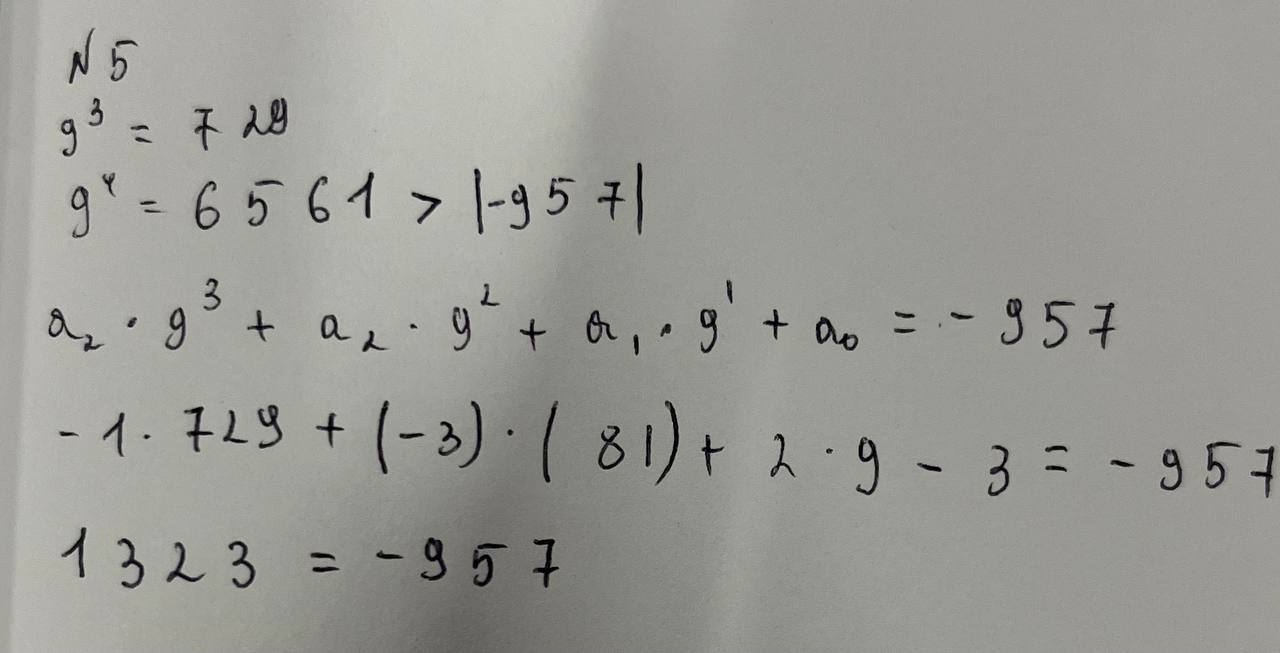 N 5
9³ = 729
9⁴ = 6561 > |-957|
a₂ · 9³ + a₂ · 9² + a₁ · 9¹ + a₀ = -957
-1 · 729 + (-3) · (81) + 2 · 9 - 3 = -957
1323 = -957